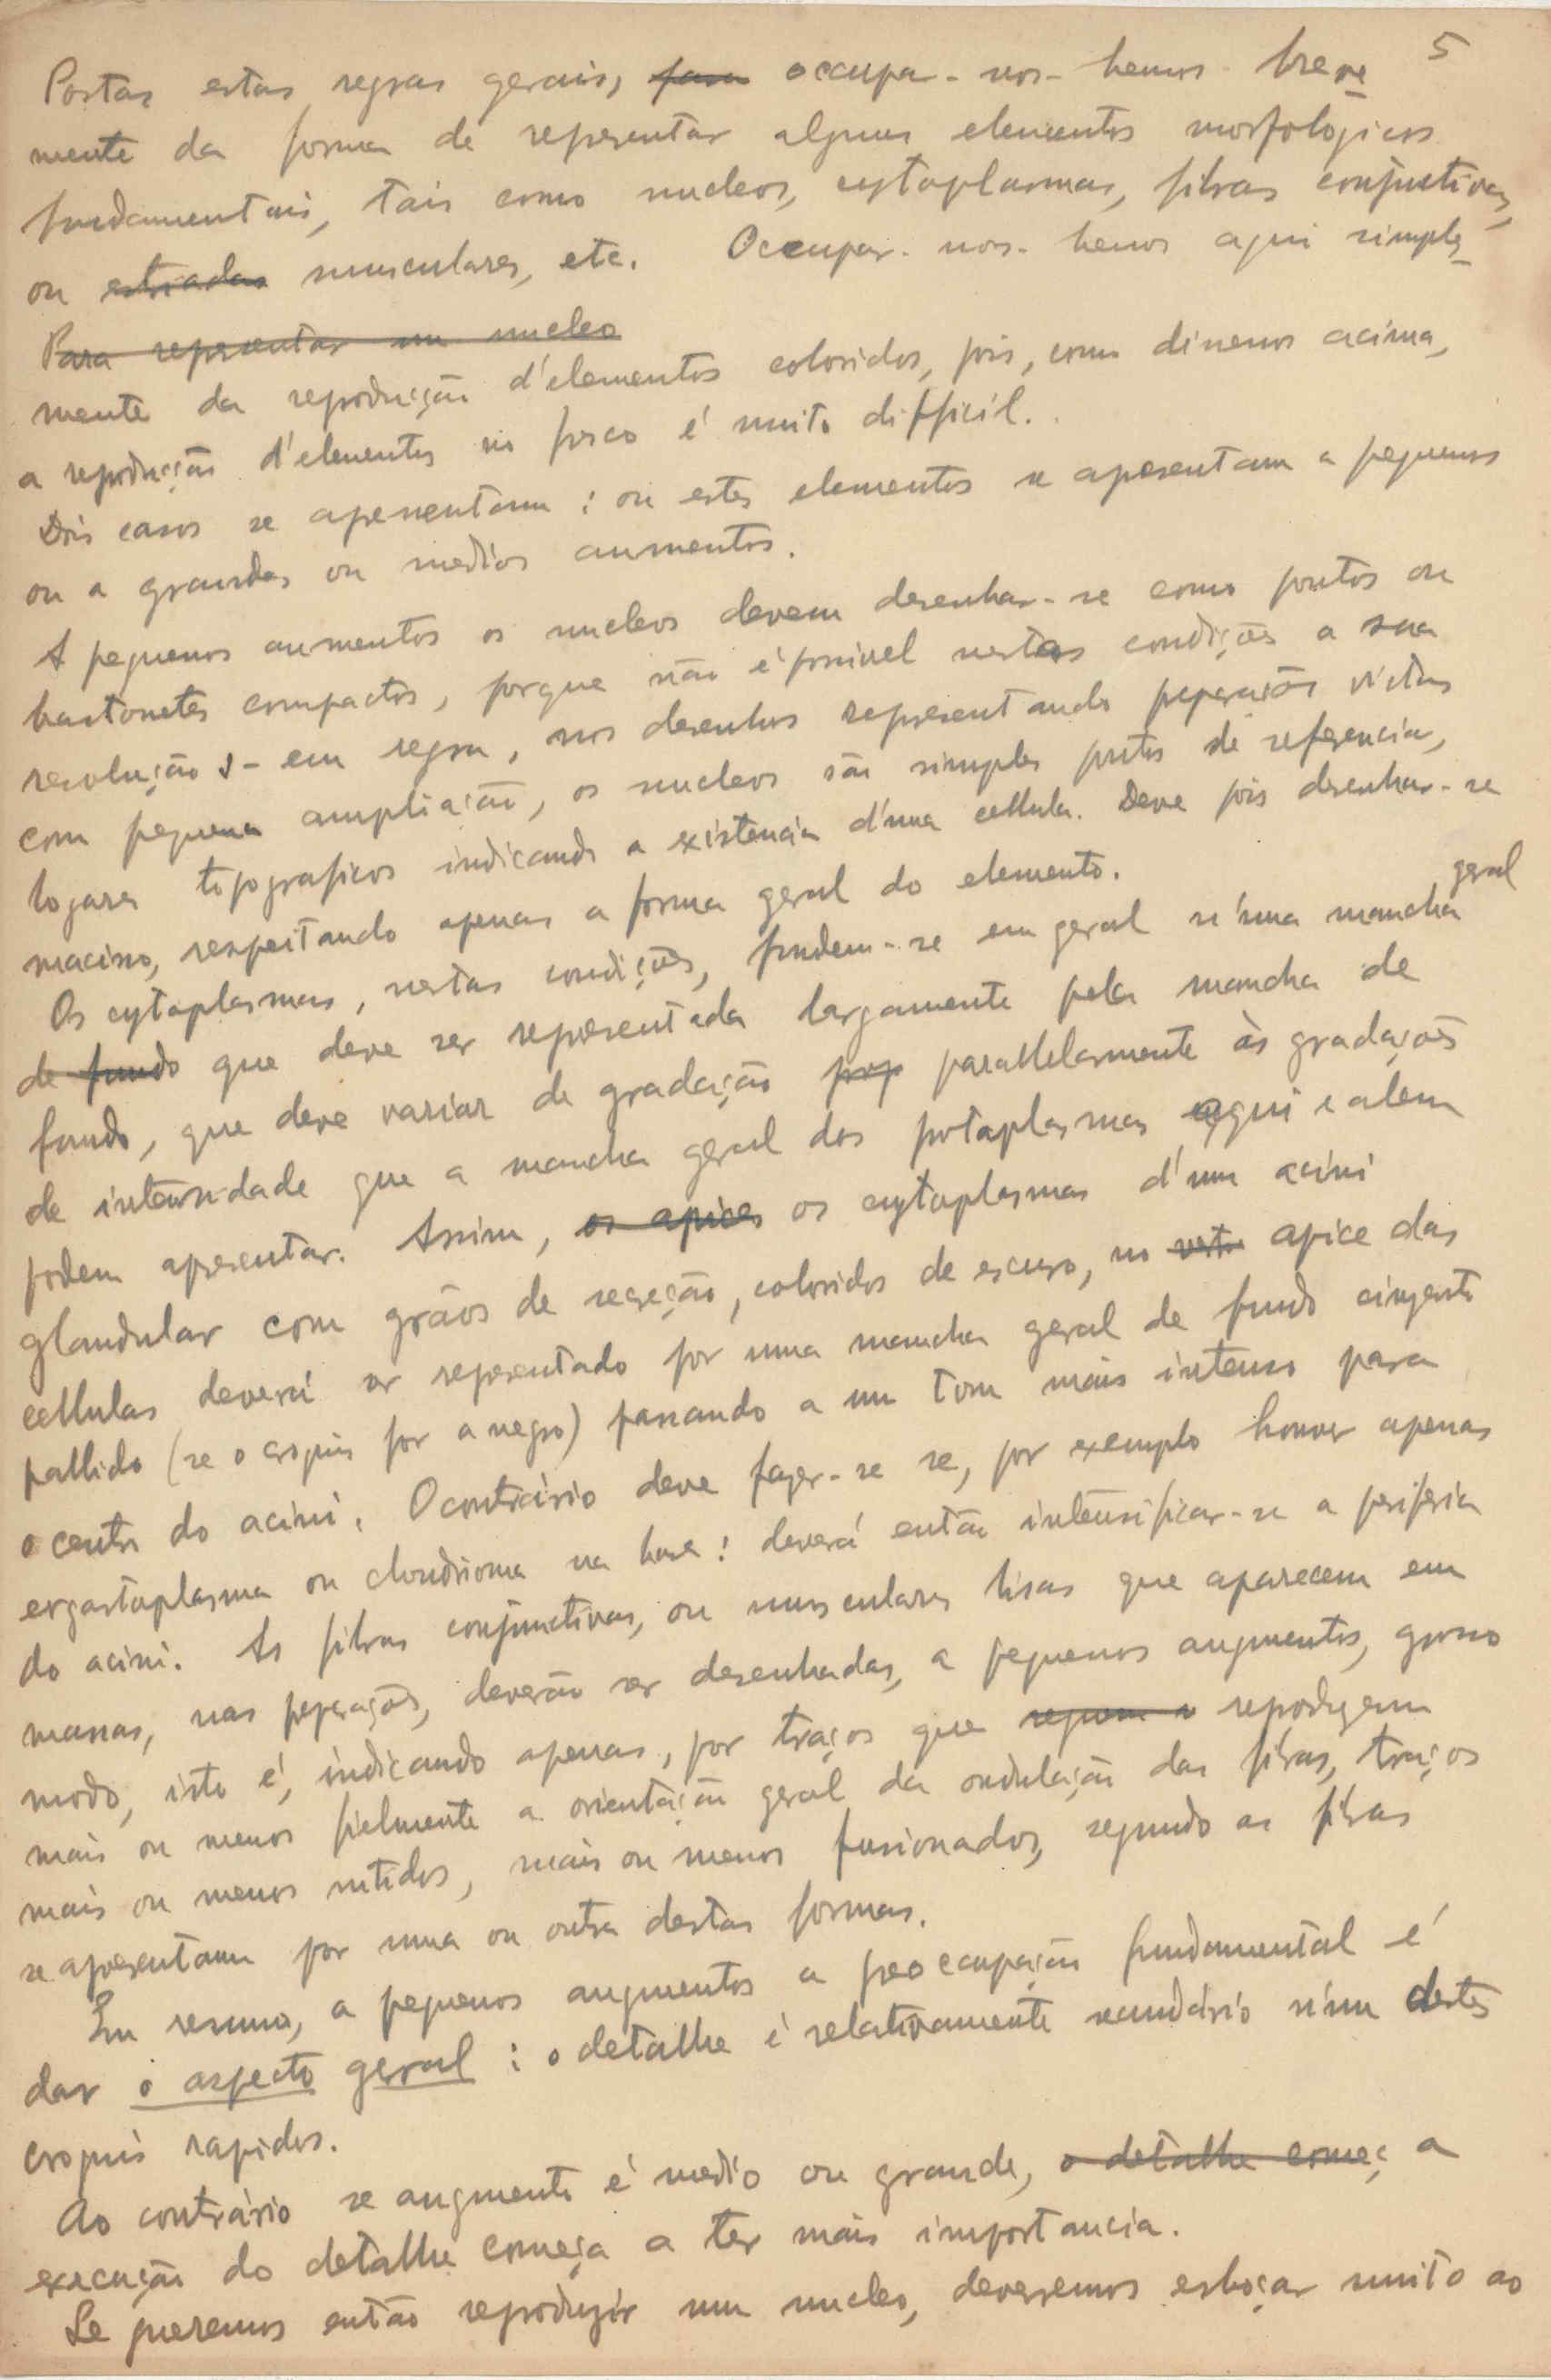 5
Postas estas regras gerais, para occupa-nos-hemos breve
mente da forma de representar alguns elementos morfologicos
fundamentais, tais como nucleos, cytoplasmas, fibras conjuctivas,
ou estriadas musculares, etc. Occupar-nos-hemos aqui simples_
Para representar um nucleo
mente da reprodução d'elementos coloridos, pois, como dissemos acima,
a reprodução d'elementos no fresco é muito difficil.
Dois casos se apresentam: ou estes elementos se apresentam a pequenos
ou a grandes ou medios aumentos.
A pequenos aumentos os nucleos devem desenhar-se como pontos ou
bastonetes compactos, porque não é possivel nestas condições a sua
resolução - em regra, nos desenhos representando preparações vistas
com pequena ampliação, os nucleos são simples pontos de referencia,
logares topograficos indicando a existencia d'uma cellula. Deve pois desenhar-se
macisso, respeitando apenas a forma geral do elemento.
Os cytoplasmas, nestas condições, fundem-se em geral n'uma mancha geral
de fundo que deve ser representada largamente pela mancha de
fundo, que deve variar de gradação prop parallelamente às gradações
de intensidade que a mancha geral dos protoplasmas aqui e alem
podem apresentar. Assim, os apices os cytoplasmas d'um acini
glandular com grãos de secreção, coloridos de escuro, no apice das
cellulas deverá ser representado por uma mancha geral de fundo cinzento
pallido (se o croquis for a negro) passando a um tom mais intenso para
o centro do acini. O contrário deve fazer-se se, por exemplo houver apenas
ergastoplasma ou chondrioma na base: deverá então intensificar-se a periferia
do acini. As fibras conjunctivas, ou musculares lisas que aparecem em
massas, nas preparações, deverão ser desenhadas, a pequenos augmentos, grosso
modo, isto é, indicando apenas, por traços que reproduzam
mais ou menos fielmente a orientação geral da ondulação das fibras, traços
mais ou menos nitidos, mais ou menos fusionados, segundo as fibras
se apresentam por uma ou outra destas formas.
Em resumo, a pequenos augmentos a preocupação fundamental é
dar o aspecto geral: o detalhe é relativamente secundário n'um destes
croquis rapidos.
Ao contrário se augmento é medio ou grande, o detalhe começ a
execução do detalhe começa a ter mais importancia.
Se queremos então reproduzir um nucleo, deveremos esboçar muito ao